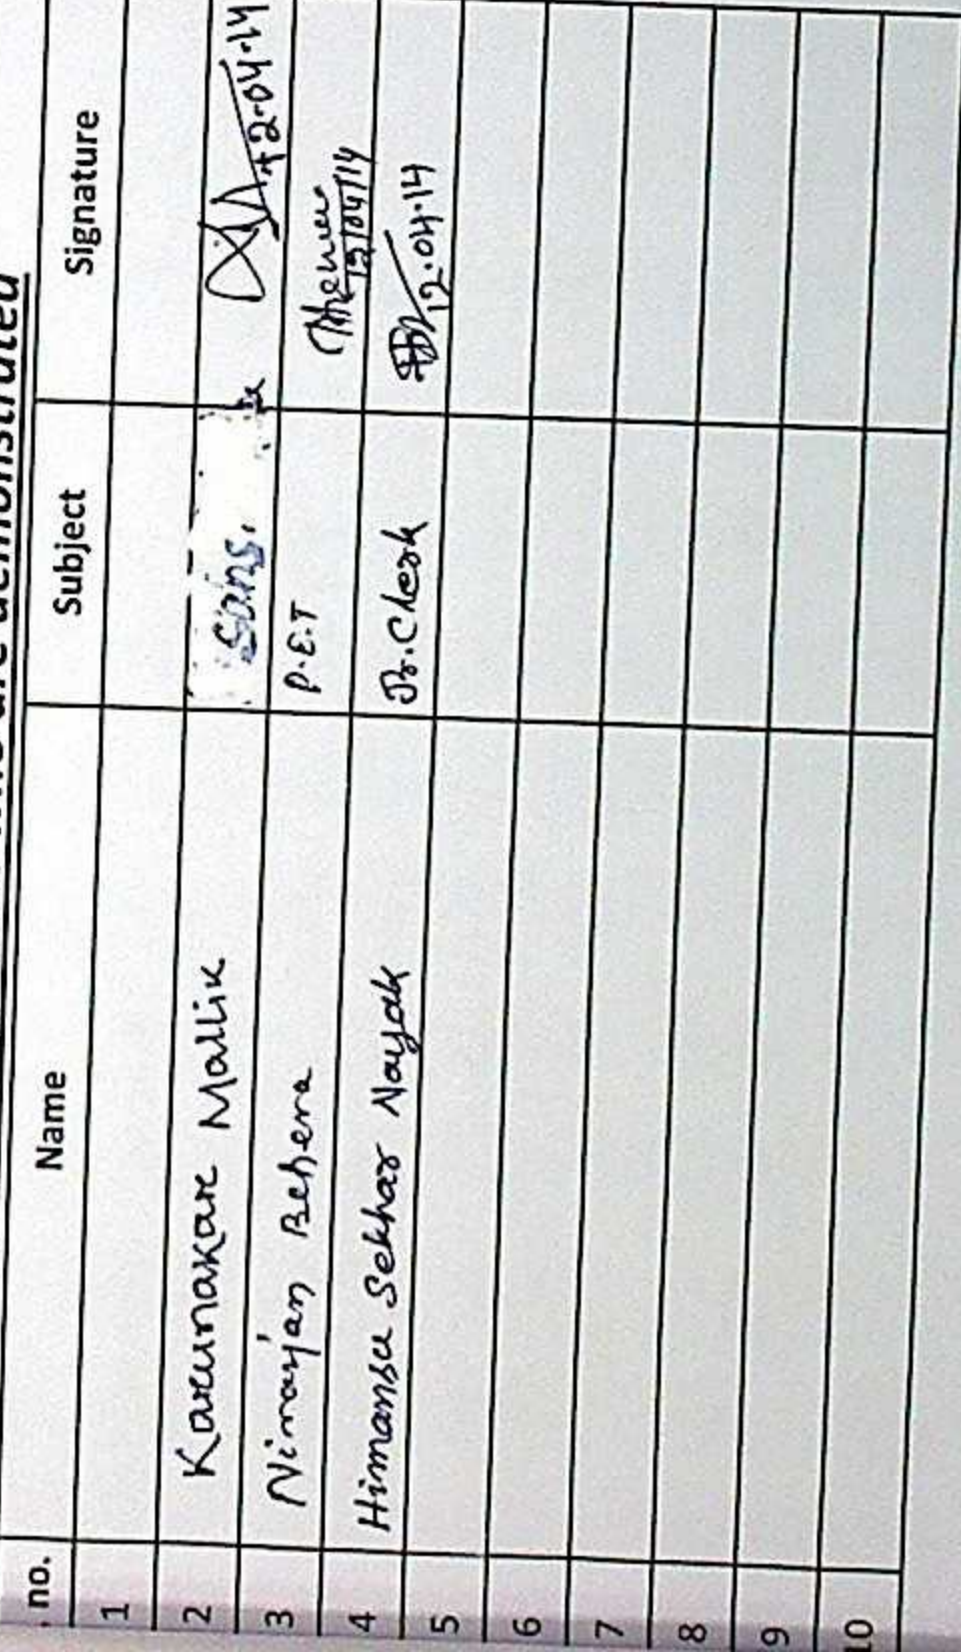 are demonstrated
no. Name Subject Signature
1
2 Karunakar Mallik Sans. 12.04.14
3 Niranjan Behera P.E.T 12/04/14
4 Himansu Sekhar Nayak Jr. Clerk 12.04.14
5
6
7
8
9
10